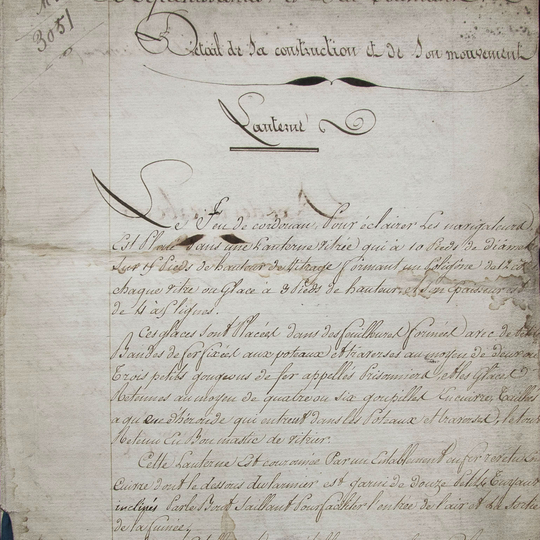 3051
Détail de Sa construction et de Son mouvement
Lanterne
Le Feu de cordouan, Pour éclairer Les navigateurs
Est Placé dans une Lanterne vitrée qui à 10 Pieds de diam
Sur Pieds de hauteur de vitrage formant un Poligone de
chaque vitre ou Glace à 3 Pieds de hauteur, et Son Epaisseur est
de 4 à 5 lignes.
Ces glaces Sont Placées dans des feuillures formées avec de
Bandes de fer fixées aux poteaux et traverses au moyen de deux ou
Trois petits gougeons de fer appellés Prisonniers, et les Glaces
Retenues au moyen de quatre ou six goupilles En cuivre,
a queue d'hironde qui entrent dans les Poteaux et traverses, le tout
Retenu En Bon mastic de vitrier.
Cette Lanterne Est couronnée Par un Etablement en fer revetu
cuivre dont le dessous du larmier est garni de douze petits Tuyaux
inclinés Par le Bout Saillant Pour faciliter l'entrée de l'air et La Sortie
de la fumée;